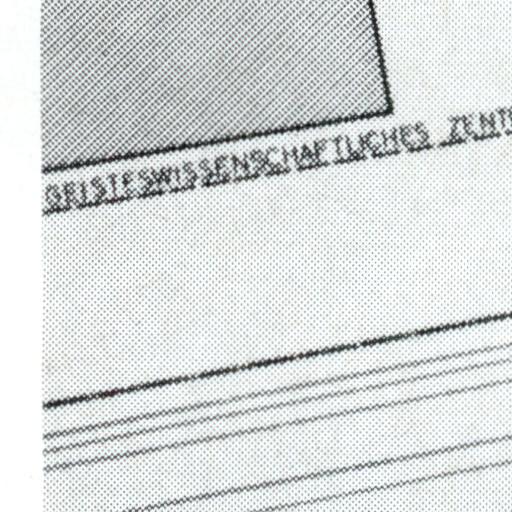 GEISTESWISSENSCHAFTLICHES ZENT